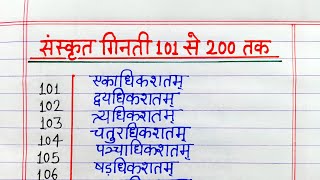 संस्कृत गिनती 101 से 200 तक
101 एकाधिकशतम्
102 द्वयधिकशतम्
103 त्र्यधिकशतम्
104 चतुरधिकशतम्
105 पञ्चाधिकशतम्
106 षडधिकशतम्